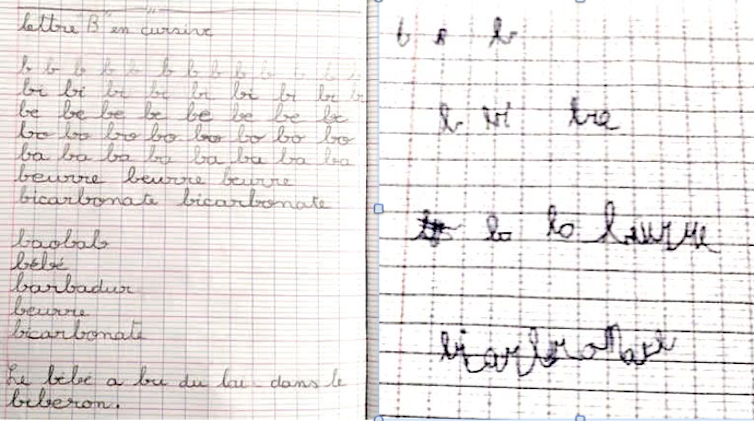 lettre "B" en cursive
b b b b b b b b b b b b b
bi bi bi bi bi bi bi bi bi
be be be be be be be be
bo bo bo bo bo bo bo bo
ba ba ba ba ba ba ba ba
beurre beurre beurre
bicarbonate bicarbonate
baobab
bébé
barbadur
beurre
bicarbonate
Le bébé a bu du lai dans le
biberon.
b b
b be
bo bo beurre